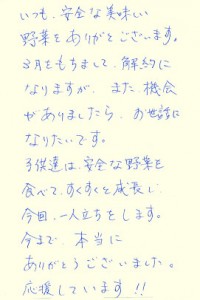 いつも、安全な美味しい
野菜をありがとうございます。
3月をもちまして、解約に
なりますが、また、機会
がありましたら、お世話に
なりたいです。
子供達は、安全な野菜を
食べて、すくすくと成長し、
今回、一人立ちをします。
今まで、本当に
ありがとうございました。
応援しています!!